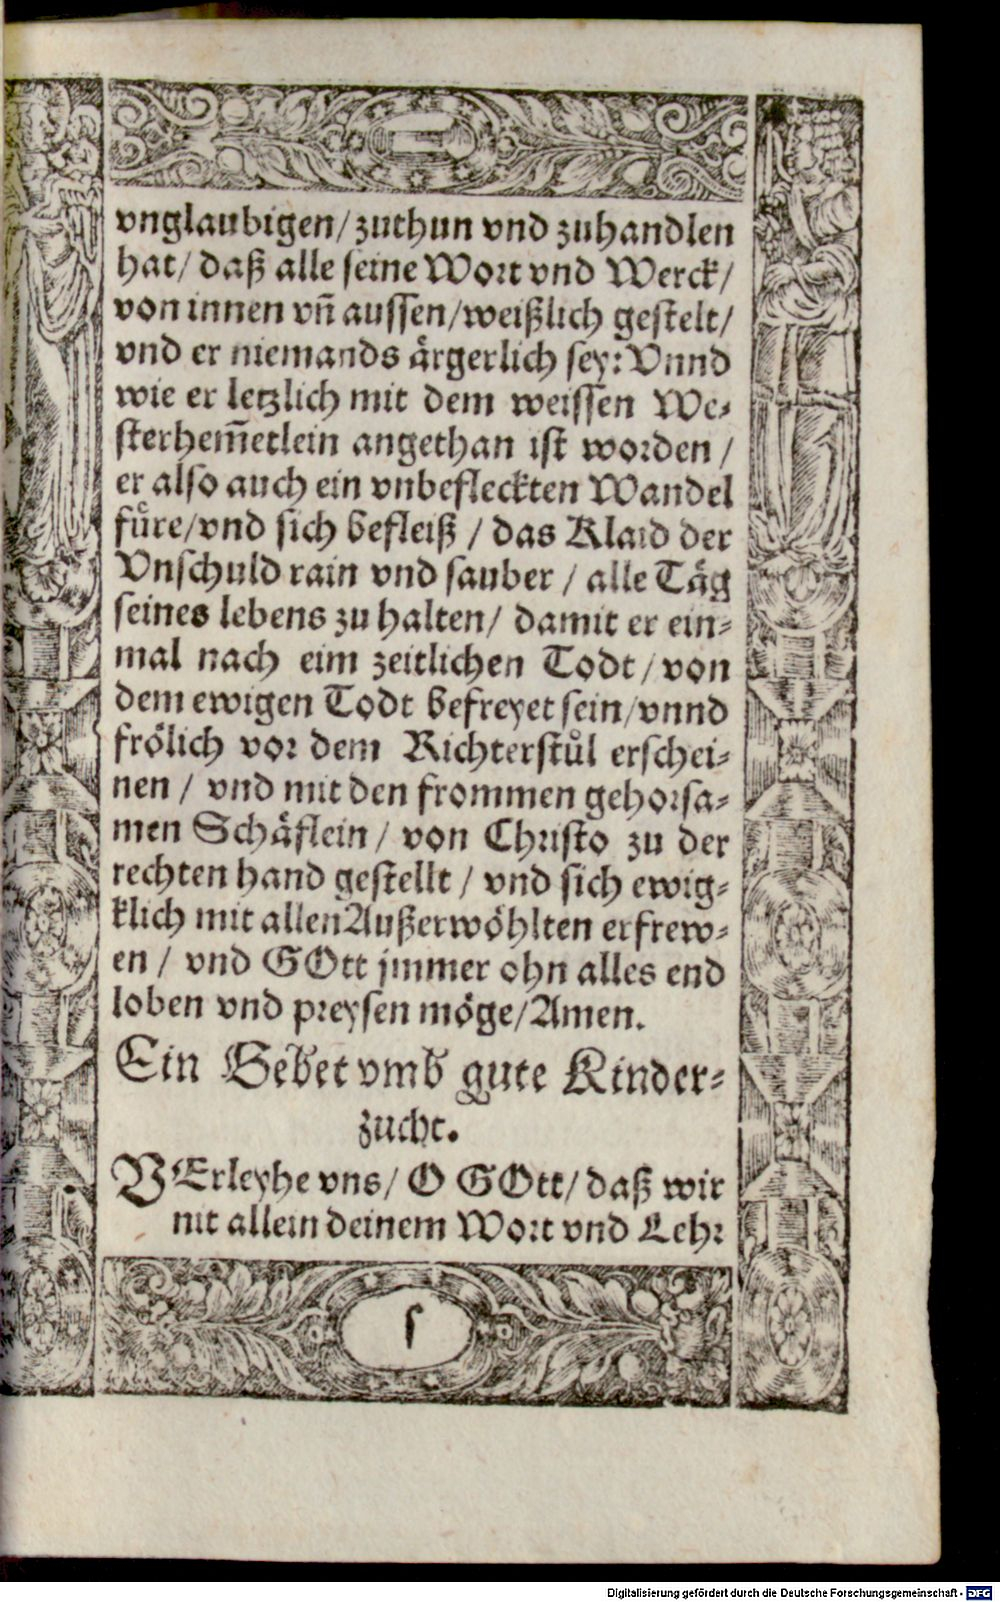 vnglaubigen/ zuthun vnd zuhandlen
hat/ daß alle seine Wort vnd Werck/
von innen vñ aussen/weißlich gestelt/
vnd er niemands ärgerlich sey: Vnnd
wie er letzlich mit dem weissen We-
sterhem̃etlein angethan ist worden /
er also auch ein vnbefleckten Wandel
fůre/vnd sich befleiß / das Klaid der
Vnschuld rain vnd sauber / alle Täg
seines lebens zu halten/ damit er ein-
mal nach eim zeitlichen Todt / von
dem ewigen Todt befreyet sein/vnnd
frölich vor dem Richterstůl erschei-
nen / vnd mit den frommen gehorsa-
men Schäflein / von Christo zu der
rechten hand gestellt / vnd sich ewig-
klich mit allen Außerwöhlten erfrew-
en / vnd GOtt jmmer ohn alles end
loben vnd preysen möge/Amen.
Ein Gebet vmb gute Kinder-
zucht.
VErleyhe vns/ O GOtt/ daß wir
nit allein deinem Wort vnd Lehr
f
Digitalisierung gefördert durch die Deutsche Forschungsgemeinschaft - DFG